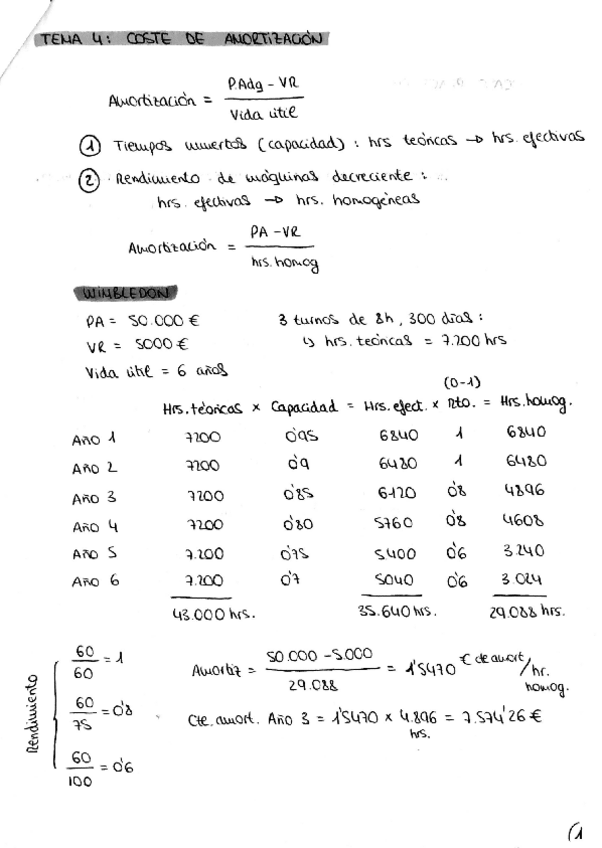 TEMA 4: COSTE DE AMORTIZACIÓN
Amortización = P.Adq - VR / Vida útil
① Tiempos muertos (capacidad): hrs teóricas → hrs. efectivas
② Rendimiento de máquinas decreciente:
hrs. efectivas → hrs. homogéneas
Amortización = PA - VR / hrs. homog
WIMBLEDON
PA = 50.000 € 3 turnos de 8h, 300 días:
VR = 5000 € ↳ hrs. teóricas = 7.200 hrs
Vida útil = 6 años
(0-1)
Hrs. teóricas × Capacidad = Hrs. efect. × Rto. = Hrs. homog.
AÑO 1 7200 0'95 6840 1 6840
AÑO 2 7200 0'9 6480 1 6480
AÑO 3 7200 0'85 6120 0'8 4896
AÑO 4 7200 0'80 5760 0'8 4608
AÑO 5 7.200 0'75 5400 0'6 3.240
AÑO 6 7.200 0'7 5040 0'6 3.024
43.000 hrs. 35.640 hrs. 29.088 hrs.
Rendimiento
60/60 = 1
60/75 = 0'8
60/100 = 0'6
Amortiz = 50.000 - 5.000 / 29.088 = 1'5470 € de amort/hr. homog.
Cte. amort. Año 3 = 1'5470 × 4.896 = 7.574'26 €
hrs.
1